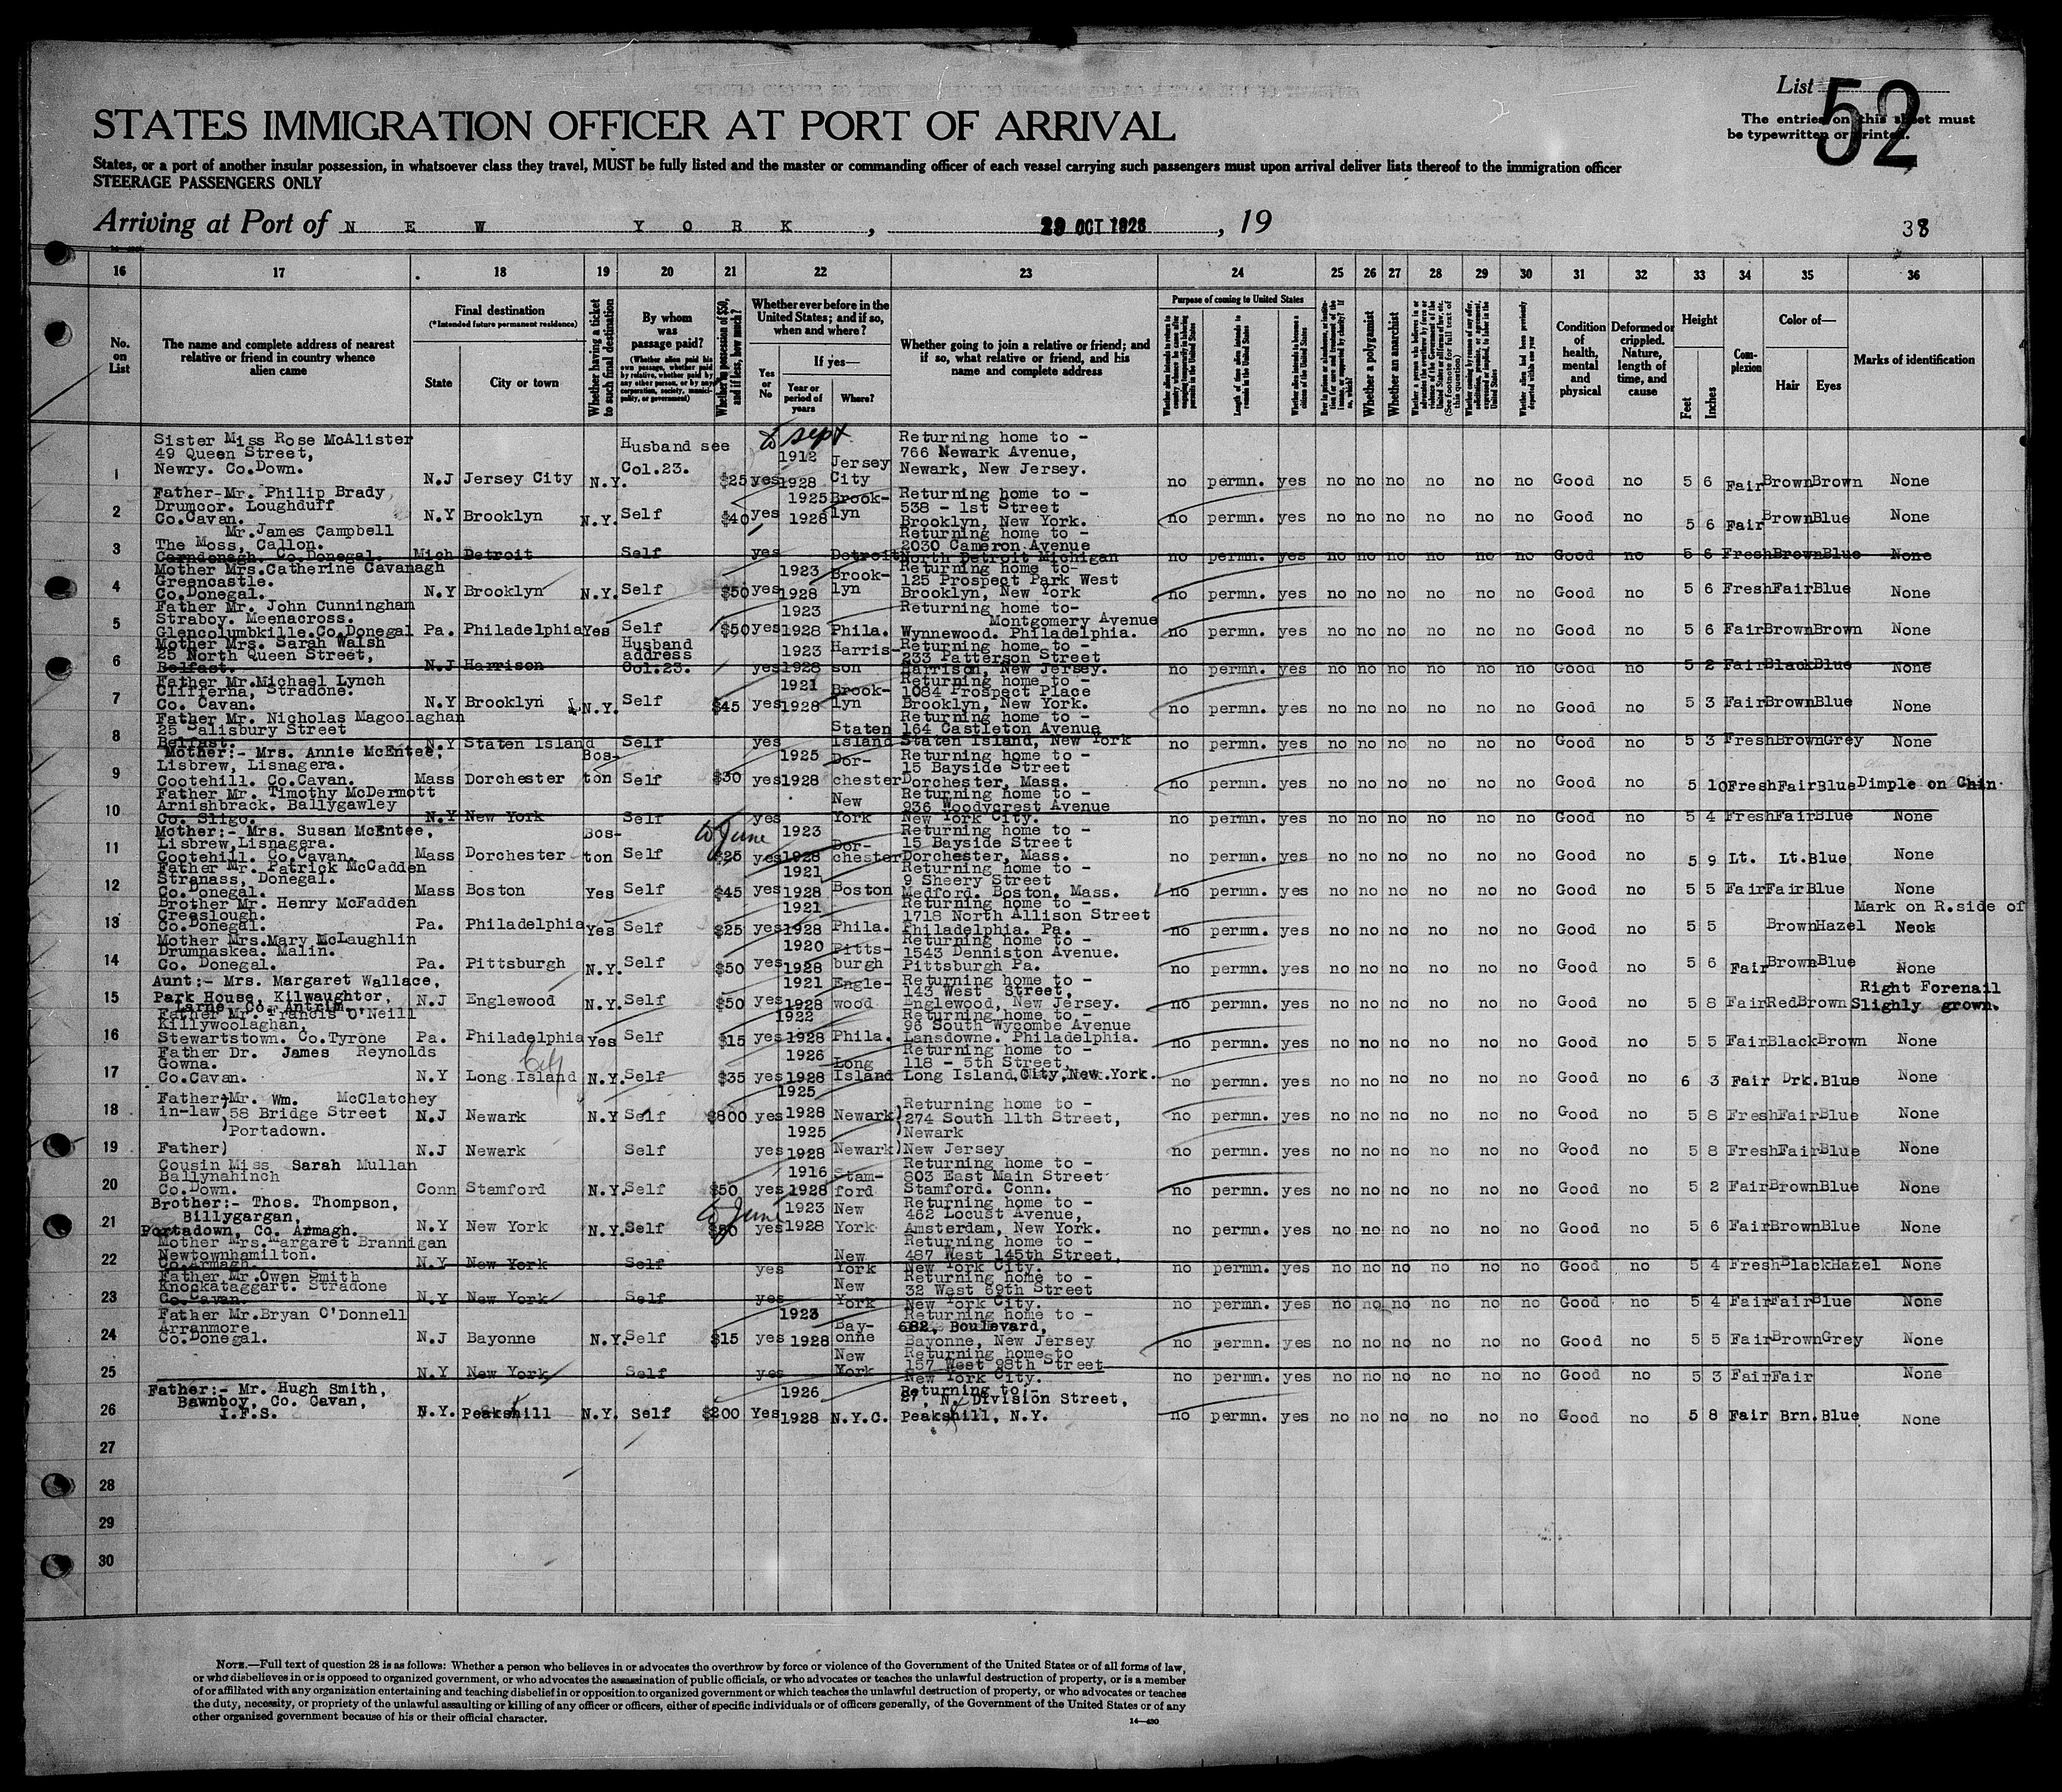 List 52
The entries on this sheet must
be typewritten or printed.
STATES IMMIGRATION OFFICER AT PORT OF ARRIVAL
States, or a port of another insular possession, in whatsoever class they travel, MUST be fully listed and the master or commanding officer of each vessel carrying such passengers must upon arrival deliver lists thereof to the immigration officer
STEERAGE PASSENGERS ONLY
Arriving at Port of NEW YORK, 29 OCT 1928, 19
38
16 17 18 19 20 21 22 23 24 25 26 27 28 29 30 31 32 33 34 35 36
No. on List
The name and complete address of nearest relative or friend in country whence alien came
Final destination
(*Intended future permanent residence)
State
City or town
Whether having a ticket to such final destination
By whom was passage paid?
(Whether alien paid his own passage, whether paid by relative, whether paid by any other person, or by any corporation, society, municipality, or government)
Whether in possession of $50, and if less, how much?
Whether ever before in the United States; and if so, when and where?
Yes or No
If yes—
Year or period of years
Where?
Whether going to join a relative or friend; and if so, what relative or friend, and his name and complete address
Purpose of coming to United States
Length of time alien intends to remain in the United States
Whether alien intends to become a citizen of the United States
Whether a polygamist
Whether an anarchist
Whether alien had been previously deported within one year
Condition of health, mental and physical
Deformed or crippled. Nature, length of time, and cause
Height
Feet
Inches
Complexion
Color of—
Hair
Eyes
Marks of identification
1 Sister Miss Rose McAlister 49 Queen Street, Newry. Co.Down. N.J Jersey City N.Y. Husband see Col.23. $25 yes to sept 1912 1928 Jersey City Returning home to - 766 Newark Avenue, Newark, New Jersey. no permn. yes no no no no no no Good no 5 6 Fair Brown Brown None
2 Father-Mr. Philip Brady Drumcor. Loughduff Co.Cavan. N.Y Brooklyn N.Y. Self $40 yes 1925 1928 Brook-lyn Returning home to - 538 - 1st Street Brooklyn, New York. no permn. yes no no no no no no Good no 5 6 Fair Brown Blue None
3 Mr.James Campbell The Moss, Callon. Carndonagh. Co.Donegal. Mich Detroit Self yes Detroit Returning home to - 2030 Cameron Avenue North Detroit Michigan no permn. yes no no no no no no Good no 5 6 Fresh Brown Blue None
4 Mother Mrs.Catherine Cavanagh Greencastle. Co.Donegal. N.Y Brooklyn N.Y. Self $50 yes 1923 1928 Brook-lyn Returning home to- 125 Prospect Park West Brooklyn, New York no permn. yes no no no no no no Good no 5 6 Fresh Fair Blue None
5 Father Mr. John Cunningham Straboy. Meenacross. Glencolumbkille.Co.Donegal Pa. Philadelphia Yes Self $50 yes 1923 1928 Phila. Returning home to- Montgomery Avenue Wynnewood. Philadelphia. no permn. yes no no no no no no Good no 5 6 Fair Brown Brown None
6 Mother Mrs. Sarah Walsh 25 North Queen Street, Belfast. N.J Harrison Husband address Col.23. yes 1923 1928 Harris-son Returning home to - 233 Patterson Street Harrison, New Jersey. no permn. yes no no no no no no Good no 5 2 Fair Black Blue None
7 Father Mr.Michael Lynch Clifferna, Stradone. Co. Cavan. N.Y Brooklyn N.Y. Self $45 yes 1921 1928 Brook-lyn Returning home to - 1084 Prospect Place Brooklyn, New York. no permn. yes no no no no no no Good no 5 3 Fair Brown Blue None
8 Father Mr. Nicholas Magoolaghan 25 Salisbury Street Belfast. N.Y Staten Island Self yes Staten Island Returning home to - 164 Castleton Avenue Staten Island, New York no permn. yes no no no no no no Good no 5 3 Fresh Brown Grey None
9 Mother:- Mrs. Annie McEntee, Lisbrew, Lisnagera. Cootehill. Co.Cavan. Mass Dorchester Bos-ton Self $30 yes 1925 1928 Dor-chester Returning home to - 15 Bayside Street Dorchester, Mass. no permn. yes no no no no no no Good no 5 10 Fresh Fair Blue Dimple on Chin.
10 Father Mr. Timothy McDermott Arnishbrack. Ballygawley Co. Sligo. N.Y New York Self yes New York Returning home to - 936 Woodycrest Avenue New York City. no permn. yes no no no no no no Good no 5 4 Fresh Fair Blue None
11 Mother:- Mrs. Susan McEntee, Lisbrew,Lisnagera. Cootehill. Co.Cavan. Mass Dorchester Bos-ton Self $25 to June yes 1923 1928 Dor-chester Returning home to - 15 Bayside Street Dorchester, Mass. no permn. yes no no no no no no Good no 5 9 Lt. Lt. Blue None
12 Father Mr. Patrick McCadden Stranass, Donegal. Co.Donegal. Mass Boston Yes Self $45 yes 1921 1928 Boston Returning home to - 9 Sheery Street Medford. Boston, Mass. no permn. yes no no no no no no Good no 5 5 Fair Fair Blue None
13 Brother Mr. Henry McFadden Creeslough. Co.Donegal. Pa. Philadelphia Yes Self $25 yes 1921 1928 Phila. Returning home to - 1718 North Allison Street Philadelphia. Pa. no permn. yes no no no no no no Good no 5 5 Brown Hazel Mark on R.side of Neck
14 Mother Mrs.Mary McLaughlin Drumnaskea. Malin. Co. Donegal. Pa. Pittsburgh N.Y. Self $50 yes 1920 1928 Pitts-burgh Returning home to - 1543 Denniston Avenue. Pittsburgh Pa. no permn. yes no no no no no no Good no 5 6 Fair Brown Blue None
15 Aunt:- Mrs. Margaret Wallace, Park House, Kilwaughter, Larne, Co. Antrim. N.J Englewood N.Y. Self $50 yes 1921 1928 Engle-wood Returning home to - 143 West Street, Englewood, New Jersey. no permn. yes no no no no no no Good no 5 8 Fair Red Brown Right Forenail Slighly grown.
16 Father Mr. Francis O'Neill Killywoolaghan, Stewartstown. Co.Tyrone Pa. Philadelphia Yes Self $15 yes 1922 1928 Phila. Returning home to - 96 South Wycombe Avenue Lansdowne. Philadelphia. no permn. yes no no no no no no Good no 5 5 Fair Black Brown None
17 Father Dr. James Reynolds Gowna. Co.Cavan. N.Y Long Island City N.Y. Self $35 yes 1926 1928 Long Island Returning home to - 118 - 5th Street, Long Island,City,New.York. no permn. yes no no no no no no Good no 6 3 Fair Drk. Blue None
18 Father-in-law Mr. Wm. McClatchey 58 Bridge Street Portadown. N.J Newark N.Y Self $800 yes 1925 1928 Newark) Returning home to - 274 South 11th Street, no permn. yes no no no no no no Good no 5 8 Fresh Fair Blue None
19 Father) N.J Newark Self yes 1925 1928 Newark) Newark New Jersey no permn. yes no no no no no no Good no 5 8 Fresh Fair Blue None
20 Cousin Miss Sarah Mullan Ballynahinch Co.Down. Conn Stamford N.Y. Self $50 yes 1916 1928 Stam-ford Returning home to - 803 East Main Street Stamford. Conn. no permn. yes no no no no no no Good no 5 2 Fair Brown Blue None
21 Brother:- Thos. Thompson, Billygargan, Portadown, Co. Armagh. N.Y New York N.Y. Self $50 to June yes 1923 1928 New York Returning home to - 462 Locust Avenue, Amsterdam, New York. no permn. yes no no no no no no Good no 5 6 Fair Brown Blue None
22 Mother Mrs.Margaret Brannigan Newtownhamilton. Co.Armagh. N.Y New York Self yes New York Returning home to - 487 West 145th Street, New York City. no permn. yes no no no no no no Good no 5 4 Fresh Black Hazel None
23 Father Mr.Owen Smith Knockataggart. Stradone Co.Cavan. N.Y New York Self yes New York Returning home to - 32 West 69th Street New York City. no permn. yes no no no no no no Good no 5 4 Fair Fair Blue None
24 Father Mr.Bryan O'Donnell Arranmore Co.Donegal. N.J Bayonne N.Y. Self $15 yes 1923 1928 Bay-onne Returning home to - 682, Boulevard, Bayonne, New Jersey no permn. yes no no no no no no Good no 5 5 Fair Brown Grey None
25 N.Y New York Self yes New York Returning home to 157 West 98th Street New York City. no permn. yes no no no no no no Good no 5 3 Fair Fair None
26 Father:- Mr. Hugh Smith, Bawnboy, Co. Cavan, I.F.S. N.Y. Peakshill N.Y. Self $200 Yes 1926 1928 N.Y.C. Returning to;- 27, N. Division Street, Peakshill, N.Y. no permn. yes no no no no no no Good no 5 8 Fair Brn. Blue None
27
28
29
30
NOTE.—Full text of question 28 is as follows: Whether a person who believes in or advocates the overthrow by force or violence of the Government of the United States or of all forms of law,
or who disbelieves in or is opposed to organized government, or who advocates the assassination of public officials, or who advocates or teaches the unlawful destruction of property, or is a member
of or affiliated with any organization entertaining and teaching disbelief in or opposition to organized government or which teaches the unlawful destruction of property, or who advocates or teaches
the duty, necessity, or propriety of the unlawful assaulting or killing of any officer or officers, either of specific individuals or of officers generally, of the Government of the United States or of any
other organized government because of his or their official character.
14—430